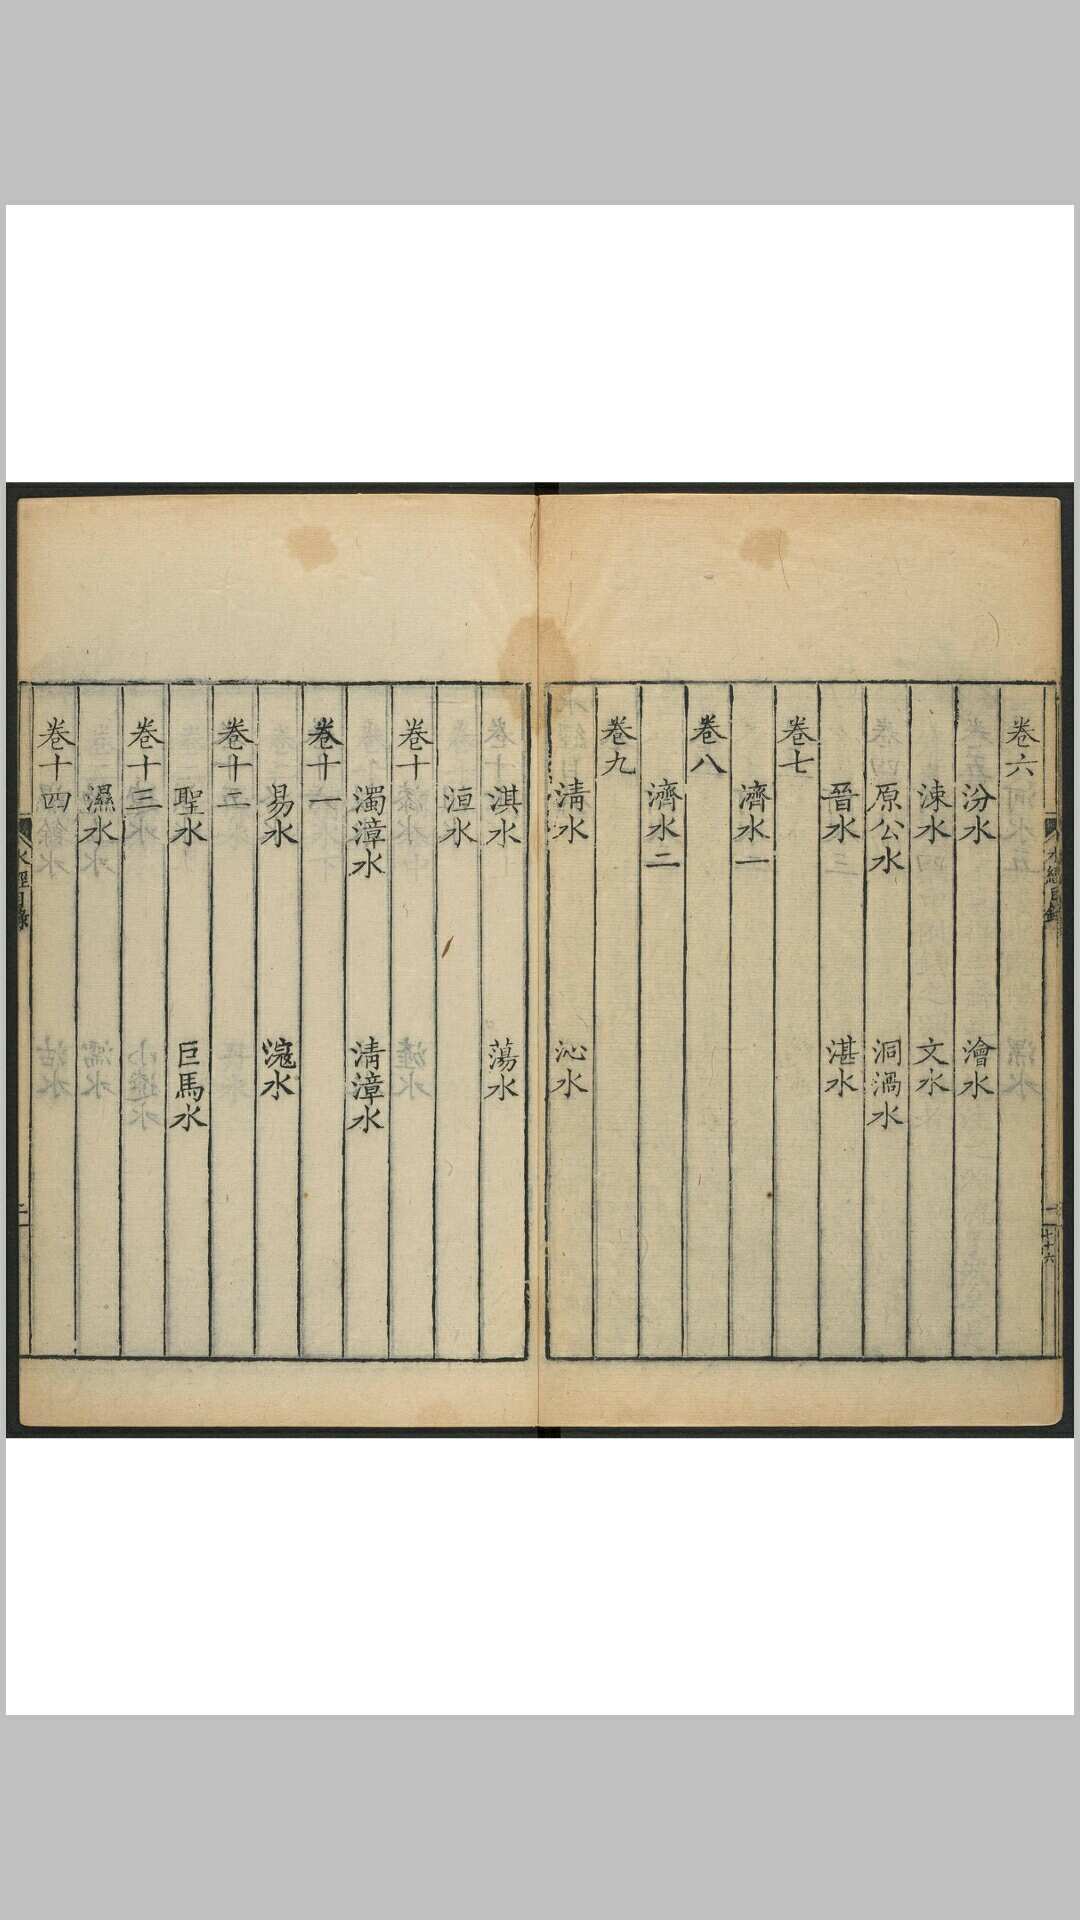 卷六
汾水 澮水
涑水 文水
原公水 洞渦水
晉水 湛水
卷七
濟水一
卷八
濟水二
卷九
淸水 沁水
淇水 蕩水
洹水
卷十
濁漳水 淸漳水
卷十一
易水 滱水
卷十二
聖水 巨馬水
卷十三
㶟水
卷十四
水經目錄